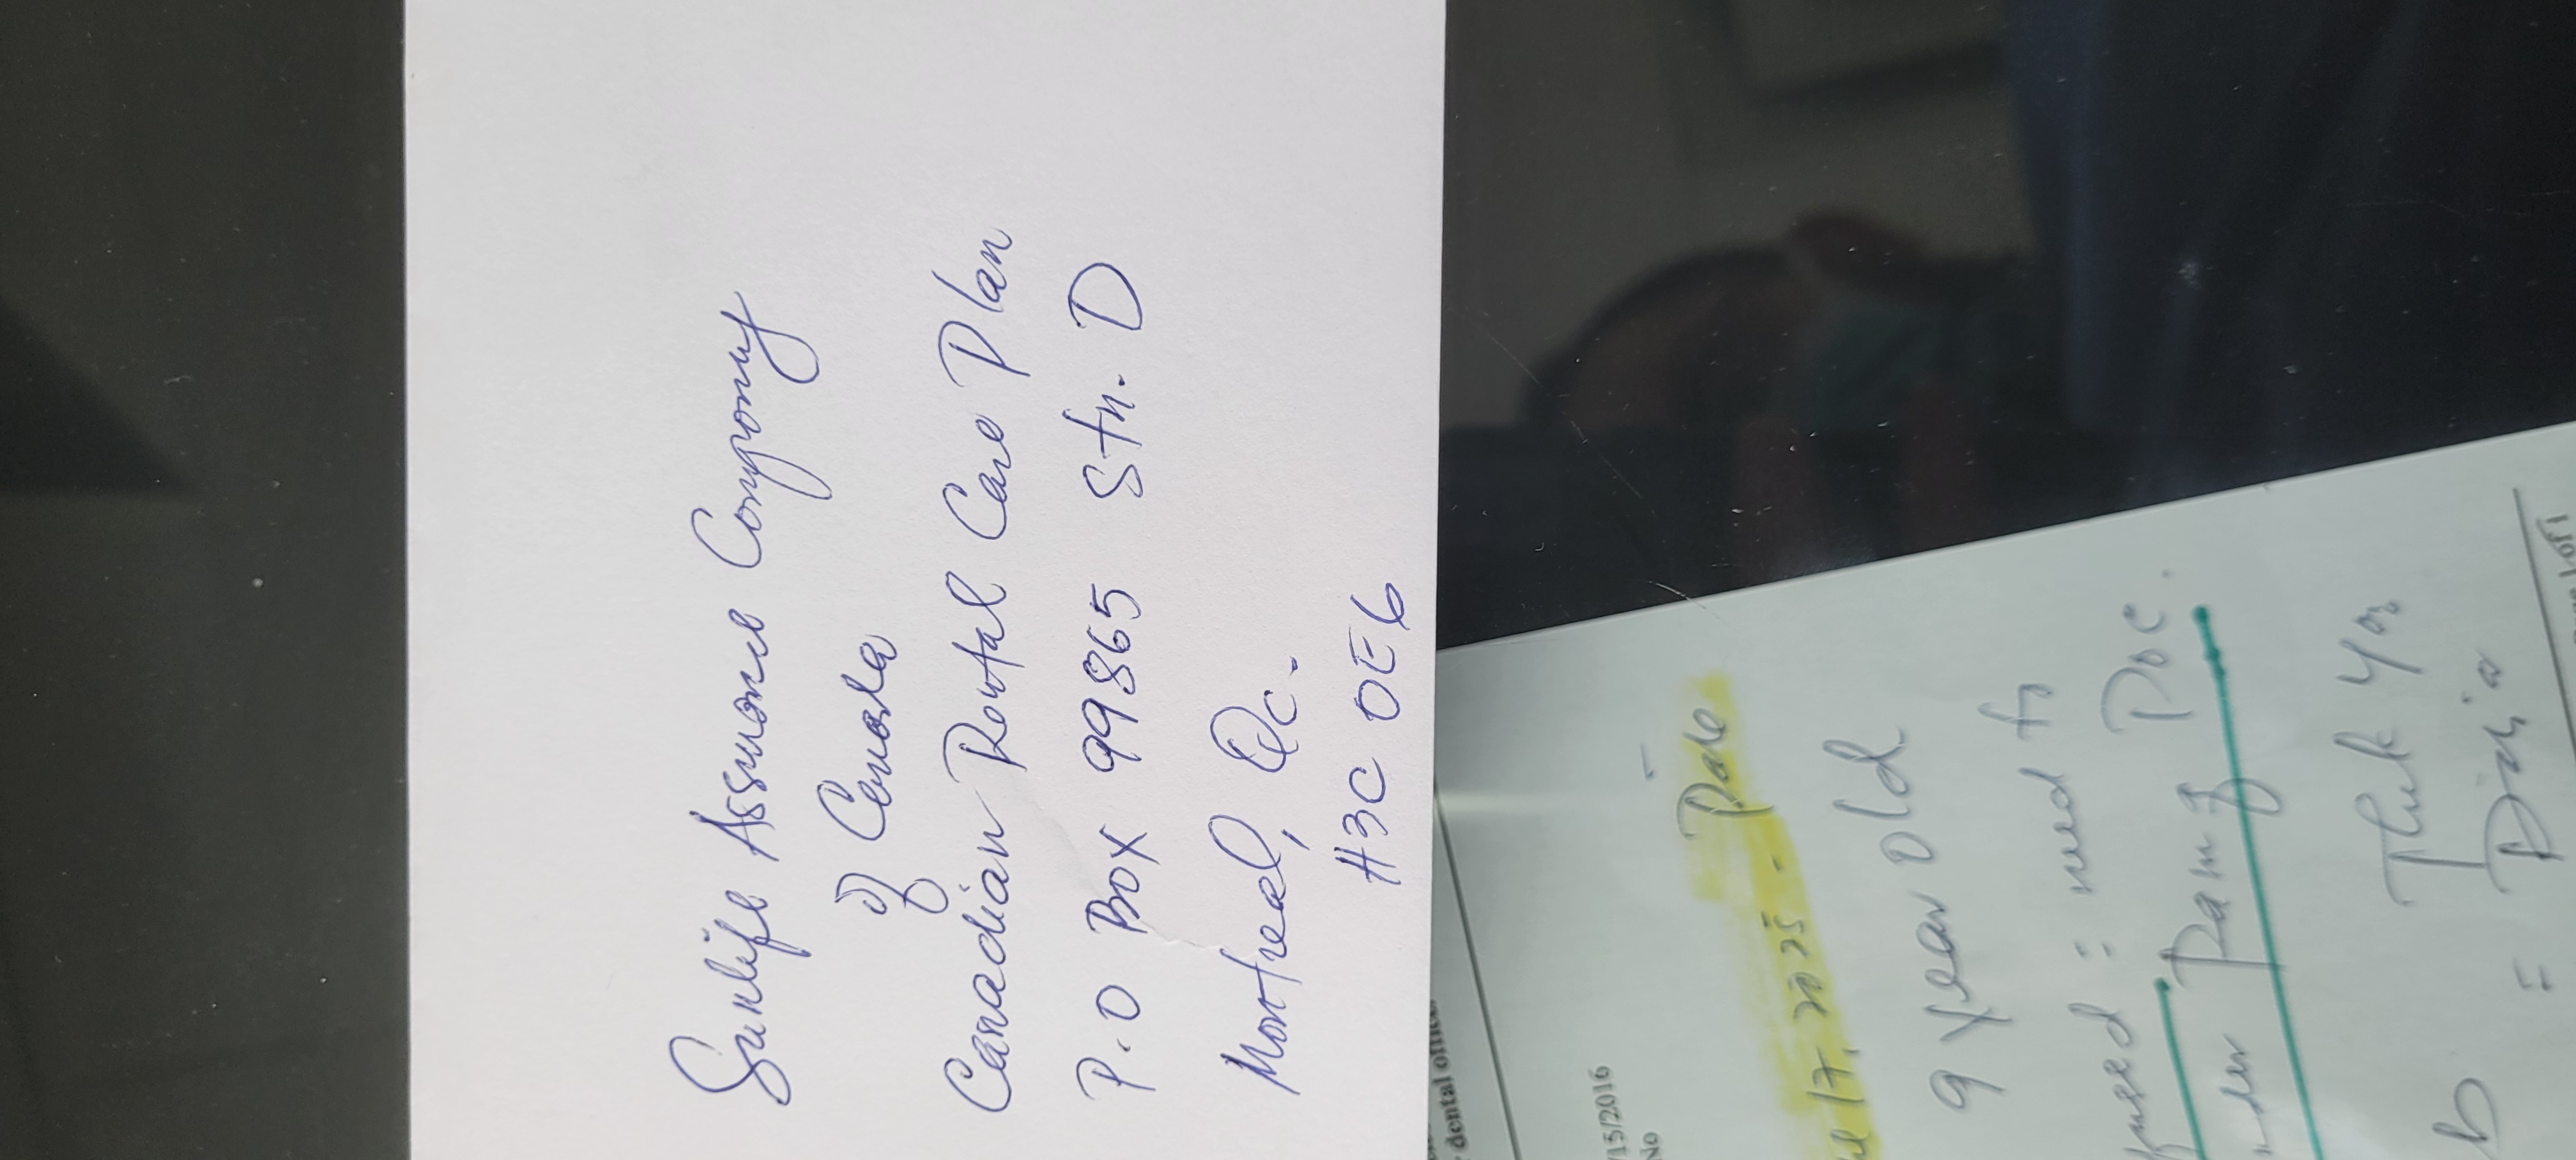 Sunlife Assurance Company
of Canada
Canadian Dental Care Plan
P.O Box 99865 Stn. D
Montreal, Qc.
H3C 0E6
dental office
/15/2016
No
17, 2025 - Date
9 Year old
need to
Pam & Doc.
= 
of 1